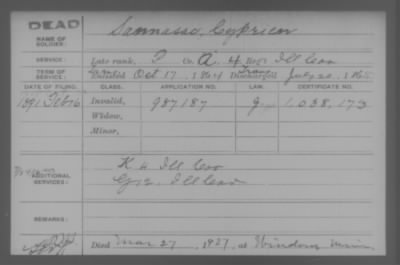 DEAD
NAME OF SOLDIER: Sannasso, Cyprien
SERVICE: Late rank, P Co. A, 4 Reg't Ill Cav
TERM OF SERVICE: Enlisted Oct 17, 1864 Discharged July 20, 1865
DATE OF FILING. CLASS. APPLICATION NO. LAW. CERTIFICATE NO.
1891 Feb 16 Invalid, 987187 1,038,173
Widow,
Minor,
ADDITIONAL SERVICES: K 4 Ill Cav
Ill Cav
REMARKS:
Died Mar 27, 1927, at Windom Minn.